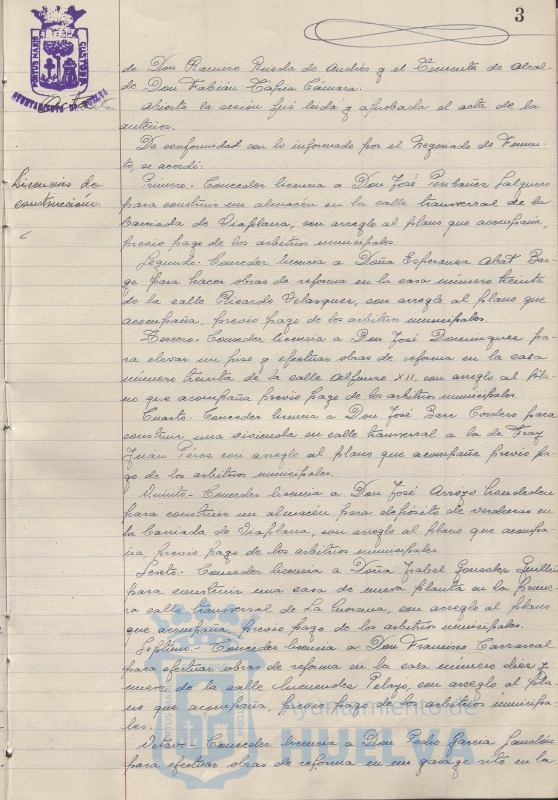 3
de Don Ramiro Rueda de Andrés y el Teniente de Alcal-
de Don Fabián Tapia Cámara.
Acta
Abierta la sesión fué leida y aprobada el acta de la
anterior.
De conformidad con lo informado por el Negociado de Fomen-
to, se acordó:
Licencias de
construcción
Primero.- Conceder licencia a Don José Salguero
para construir un almacén en la calle transversal de la
Barriada de Viaplana, con arreglo al plano que acompaña,
previo pago de los arbitrios municipales.
Segundo.- Conceder licencia a Doña Esperanza Abat
para hacer obras de reforma en la casa número treinta
de la calle Ricardo Velazquez, con arreglo al plano que
acompaña, previo pago de los arbitrios municipales.
Tercero.- Conceder licencia a Don José Dominguez pa
ra elevar un piso y efectuar obras de reforma en la casa
número treinta de la calle Alfonso XII, con arreglo al pla-
no que acompaña previo pago de los arbitrios municipales.
Cuarto.- Conceder licencia a Don José Barr Cordero para
construir una vivienda en calle transversal a la de Fray
Juan Pérez con arreglo al plano que acompaña previo pa-
go de los arbitrios municipales.
Quinto.- Conceder licencia a Don José Arroyo
para construir un almacén para depósito de verduras en
la Barriada de Viaplana, con arreglo al plano que acompa
ña, previo pago de los arbitrios municipales.
Sexto.- Conceder licencia a Doña Isabel Gonzalez Guillén
para construir una casa de nueva planta en la prime-
ra calle transversal de La con arreglo al plano
que acompaña, previo pago de los arbitrios municipales.
Septimo.- Conceder licencia a Don Francisco Carrascal
para efectuar obras de reforma en la casa número diez y
nueve de la calle Menendez Pelayo, con arreglo al pla-
no que acompaña, previo pago de los arbitrios municipa-
les.
Octavo.- Conceder licencia a Don Pedro Garcia
para efectuar obras de reforma en un garage sito en la
Ayuntamiento de
HUELVA